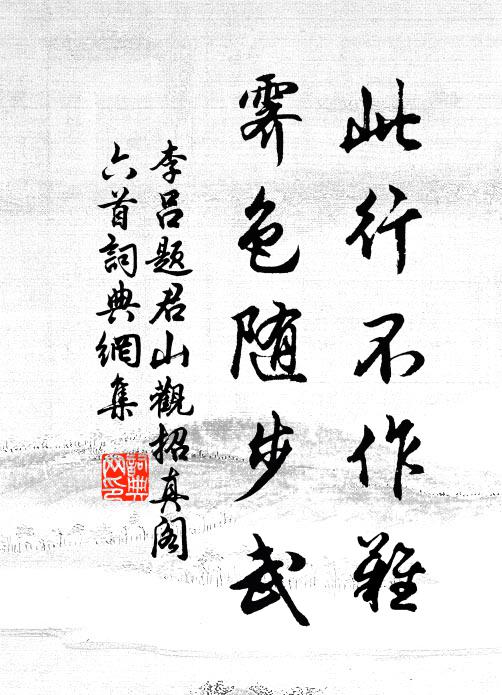 此行不作難
霽色随步武
李吕題君山觀招真閣
六首詞典網集
詞典網印